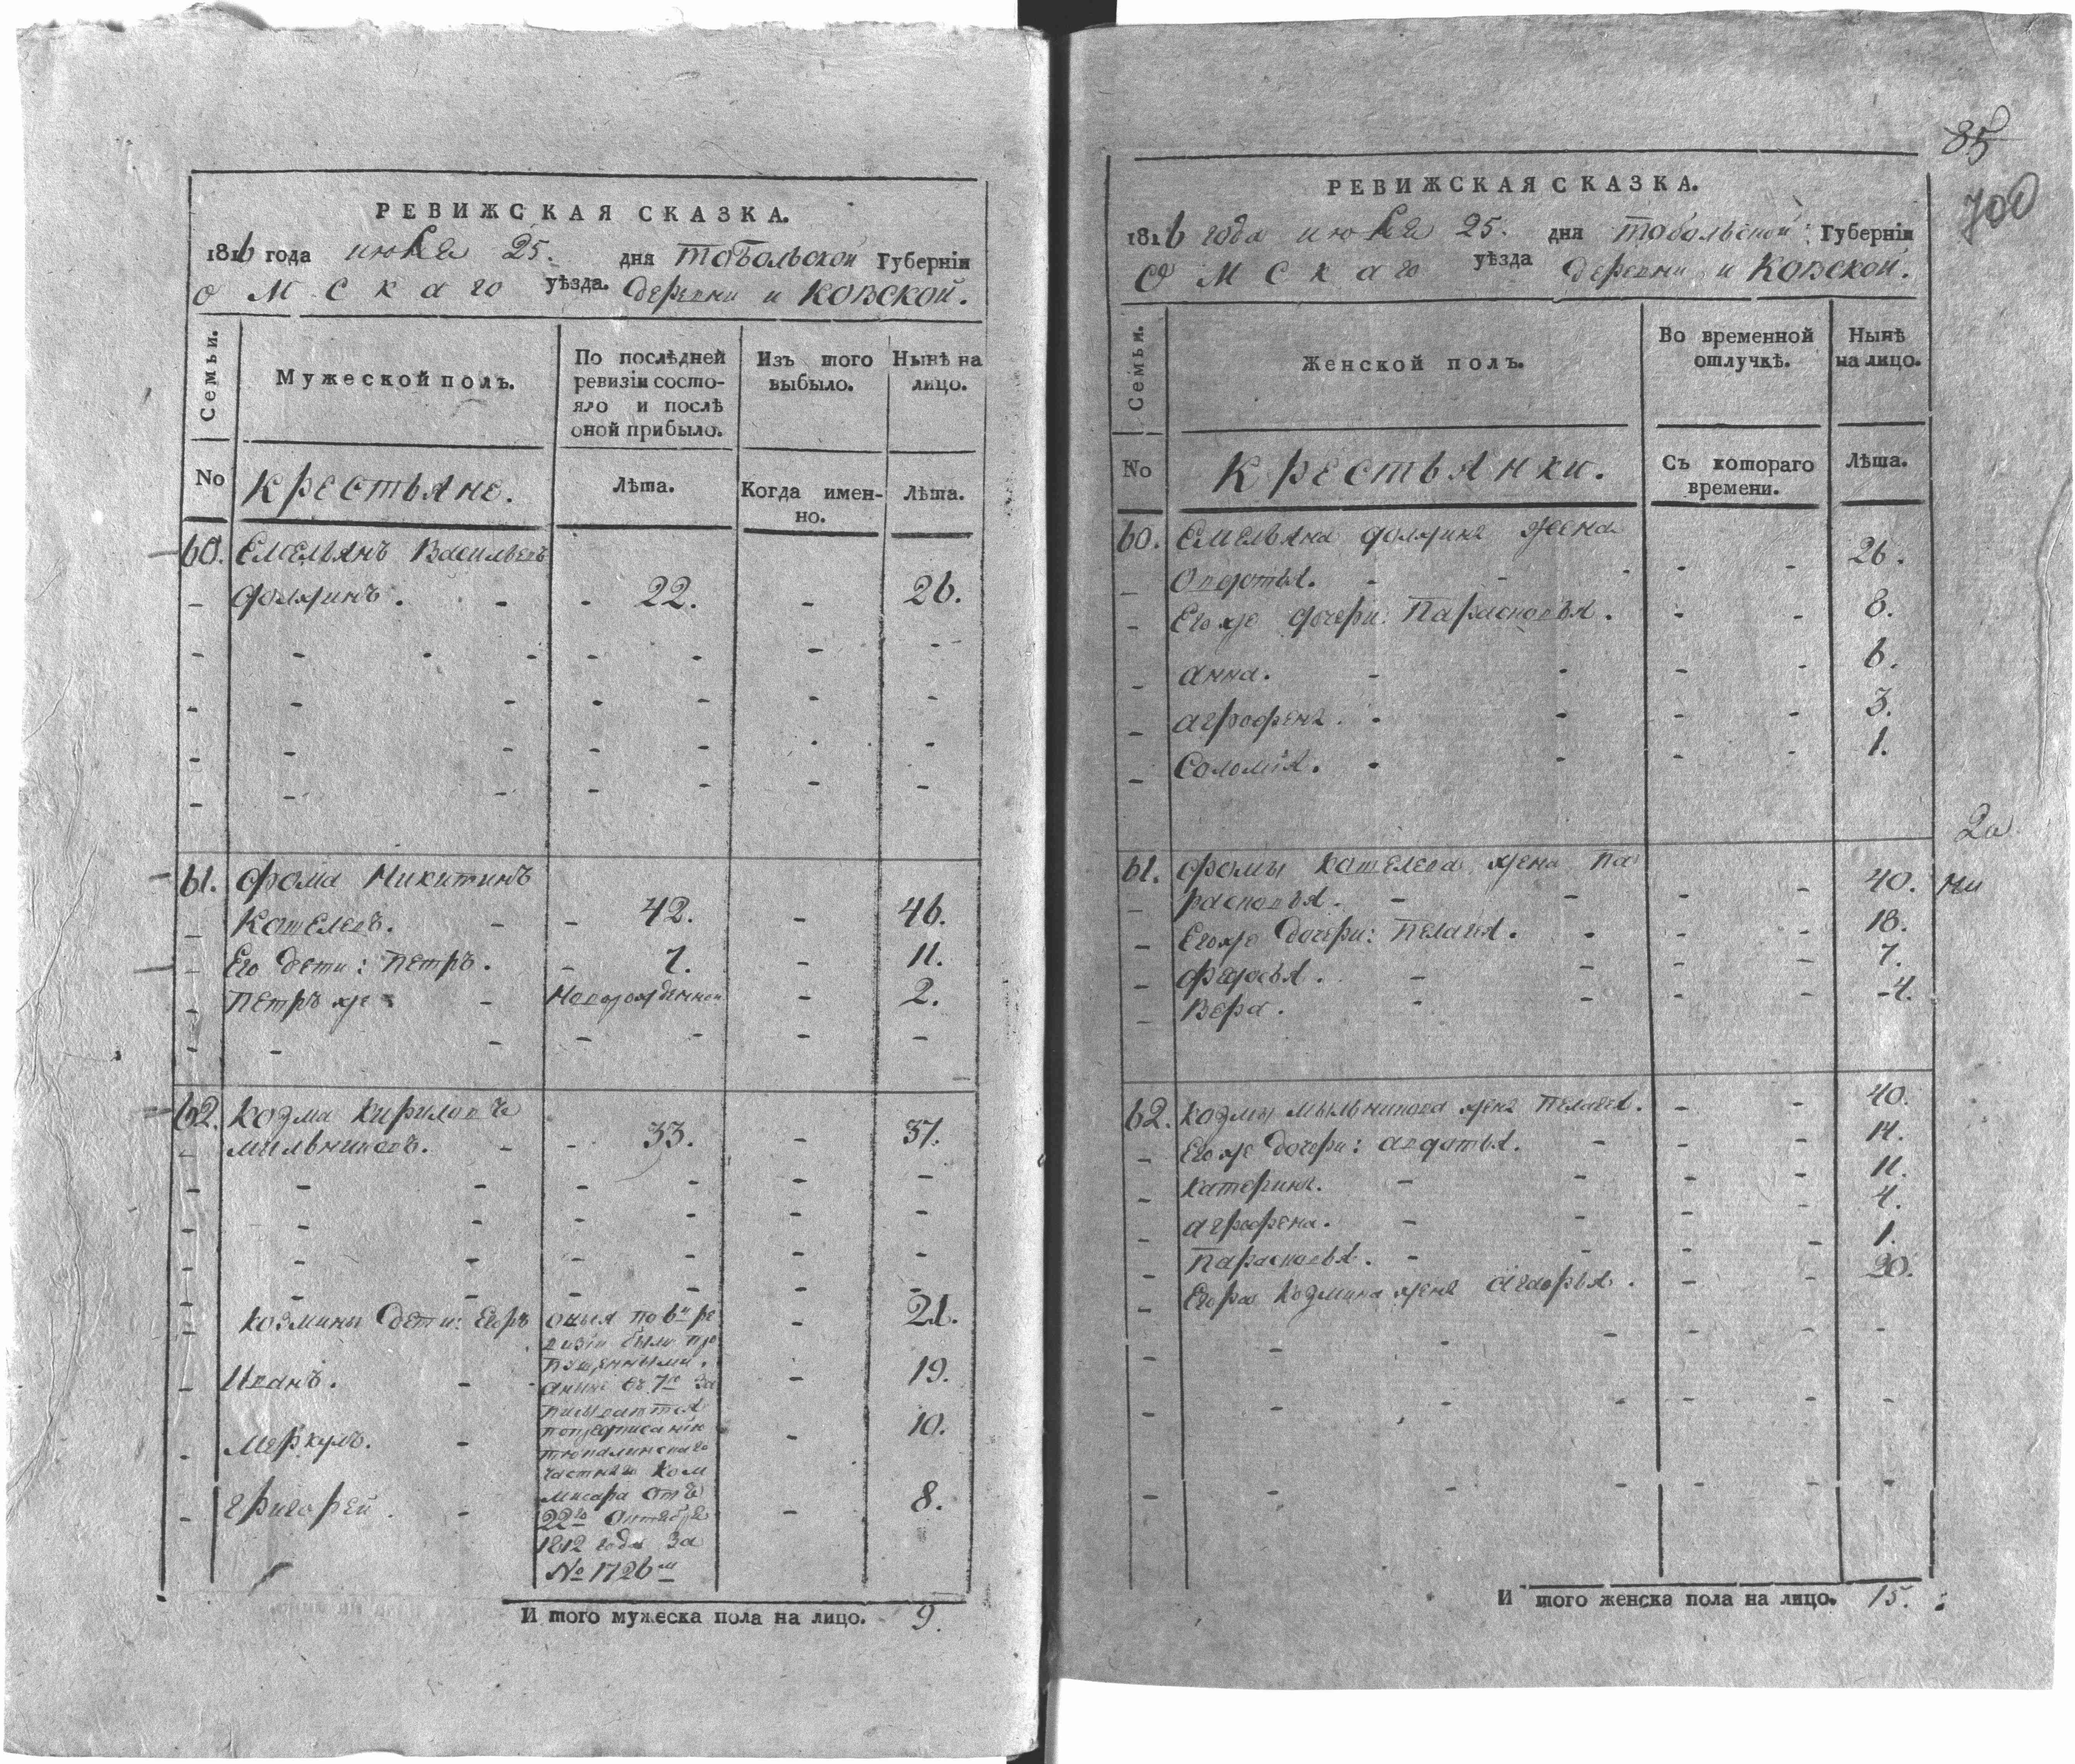 РЕВИЖСКАЯ СКАЗКА.
1816 года июня 25. дня Тобольской Губерніи
Омскаго уѣзда. деревни Иковской.
Семьи.
Мужеской полъ.
По послѣдней ревизіи состо-
яло и послѣ
оной прибыло.
Изъ того
выбыло.
Нынѣ на
лицо.
No
Крестьяне.
Лѣта.
Когда имен-
но.
Лѣта.
60. Емельянъ Васильевъ
22. 26.
61. Фома Никитинъ
Кателевъ. 42. 46.
Его дети: Петръ. 7. 11.
Петръ же Новорожденной 2.
62. Козма Кириловъ
Мыльниковъ. 33. 37.
Козмины дети: Егоръ 21.
оныя по 6й ре
визіи были про
пущенными.
Иванъ. 19.
а ныне въ 7ю за
писываются
Меркулъ. 10.
по предписанію
тюкалинскаго
частнаго Ком
Григорей. 8.
мисара отъ
22го Октября
1812 года за
№ 1726м
И того мужеска пола на лицо. 9.
85
700
РЕВИЖСКАЯ СКАЗКА.
1816 года июня 25. дня Тобольской Губерніи
Омскаго уѣзда деревни Иковской.
Семьи.
Женской полъ.
Во временной
отлучкѣ.
Нынѣ
на лицо.
No
Крестьянки.
Съ котораго
времени.
Лѣта.
60. Емельяна жена
Овдотья. 26.
Егоже дочери: Парасковья. 8.
Анна. 6.
Агрофена. 3.
Соломія. 1.
61. Фомы Кателева жена Па
расковья. 40.
Егоже дочери: Пелагея. 18.
Федосья. 7.
Вера. 4.
62. Козмы Мыльникова жена Пелагея. 40.
Егоже дочери: Авдотья. 14.
Катерина. 11.
Агрофена. 4.
Парасковья. 1.
Егора Козмина жена 20.
И того женска пола на лицо. 15.